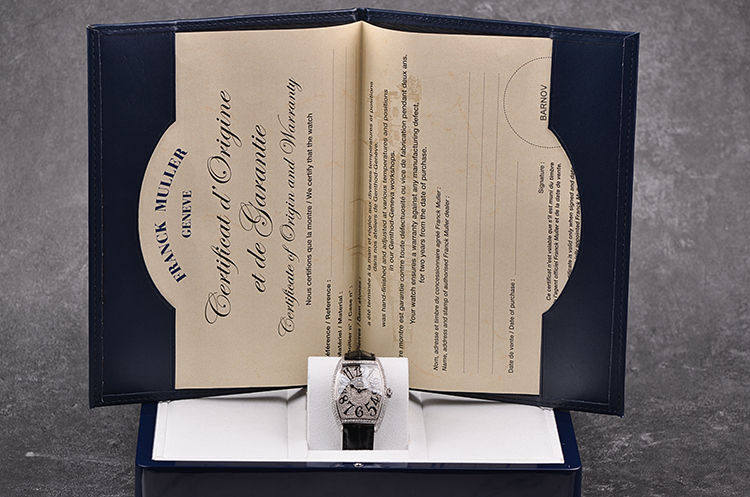 FRANCK MULLER
GENEVE
Certificat d'Origine
et de Garantie
Certificate of Origin and Warranty
Nous certifions que la montre / We certify that the watch
Référence / Reference :
Matériel / Material :
a été terminée à la main et réglée aux diverses températures et positions
dans nos ateliers de Genthod-Genève.
was hand-finished and adjusted at various temperatures and positions
in our Genthod-Geneva workshops.
montre est garantie contre toute défectuosité ou vice de fabrication pendant deux ans.
Your watch ensures a warranty against any manufacturing defect,
for two years from the date of purchase.
Nom, adresse et timbre du concessionnaire agréé Franck Muller :
Name, address and stamp of authorised Franck Muller dealer :
Date de vente / Date of purchase :
Signature :
Ce certificat n'est valable que s'il est muni du timbre
l'agent officiel Franck Muller et de la date de vente.
is valid only when signed and dated
appointed Franck Muller
BARNOV
12
8
7
6
5